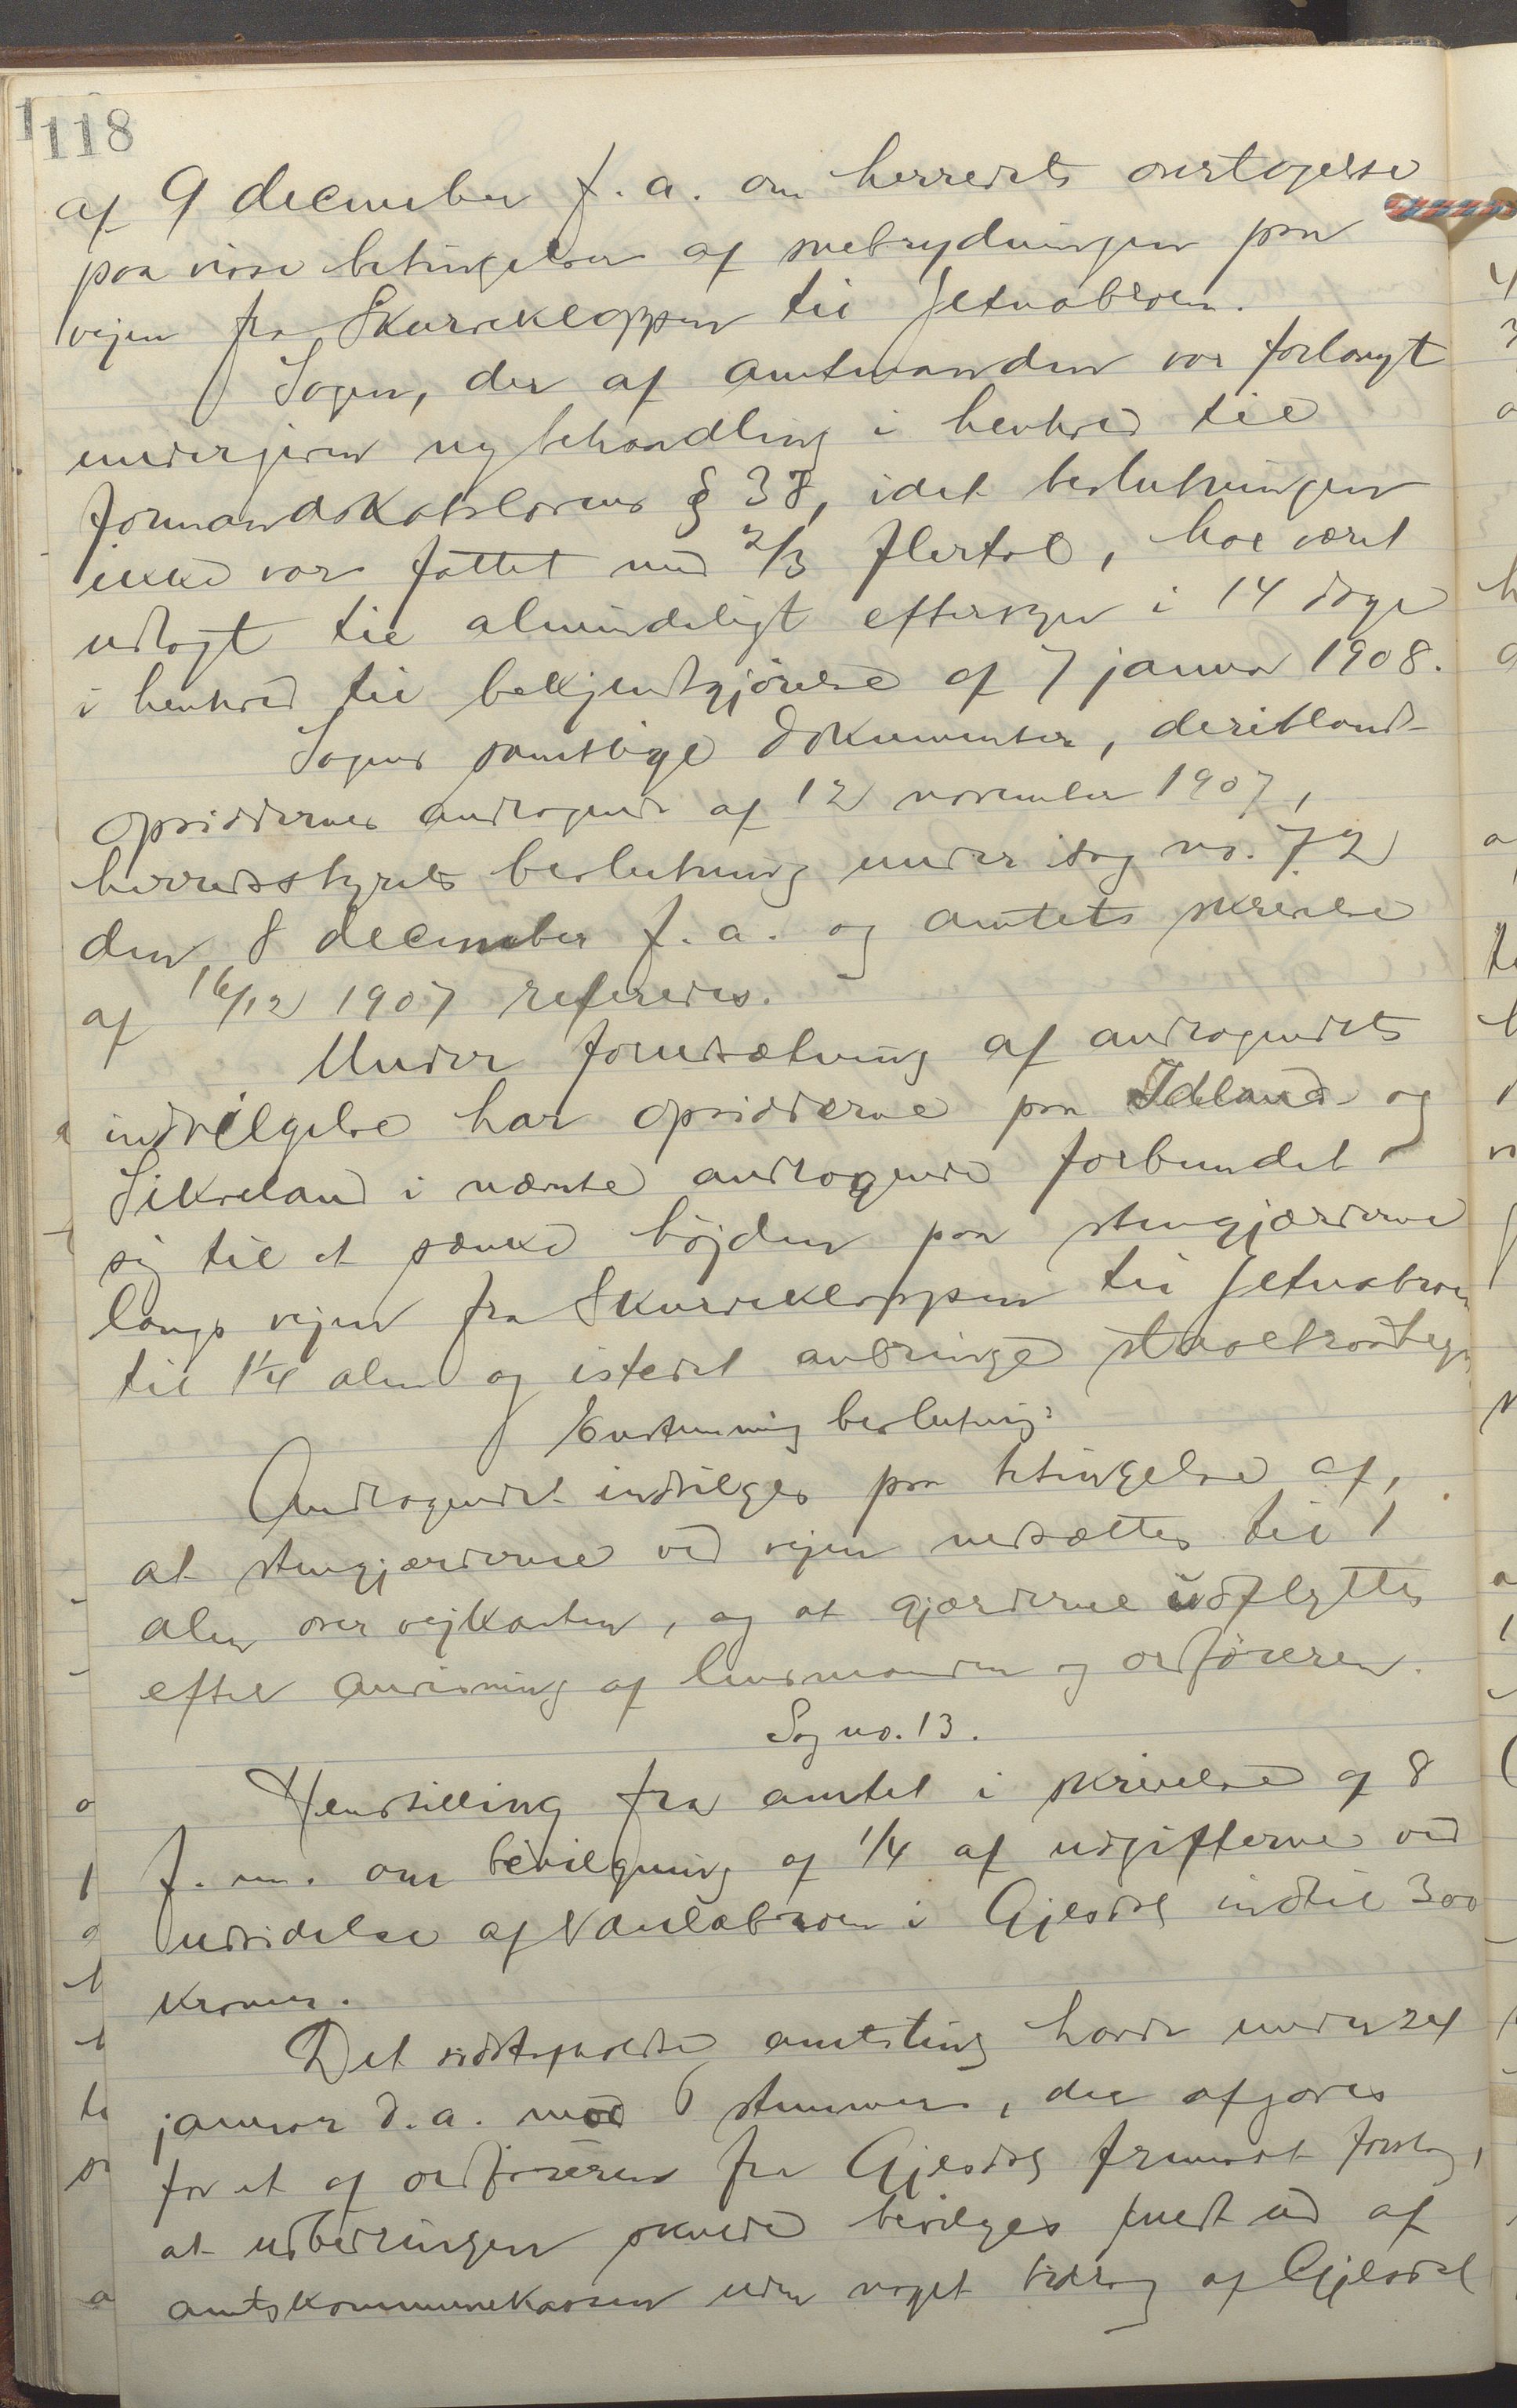 118
af 9 december f. a. om herredets overtagelse
paa visse betingelser af snebrydningen paa
vejen fra Skurvekloppen til Jetnabroen.
Sagen, der af amtmanden var forlangt
undergiven ny behandling i henhold til
formandskabslovens § 38, idet beslutningen
ikke var fattet med 2/3 flertal, har været
udlagt til almindeligt eftersyn i 14 dage
i henhold til bekjendtgjörelse af 7 januar 1908.
Sagens samtlige dokumenter, deriblandt
opsiddernes andragende af 12 november 1907,
herredsstyrets beslutning under sag no. 72
den 8 december f. a. og amtets skrivelse
af 16/12 1907 referedes.
Under forudsætning af andragendets
indvilgelse har opsidderne paa Idland og
Sikveland i nævnte andragende forbundet
sig til at sænke höjden paa stengjærderne
langs vejen fra Skurvekloppen til Jetnabroen
til 1 1/4 alen og istedet anbringe staaltraadhegn
Enstemmig beslutning:
Andragendet indvilges paa betingelse af,
at stengjærderne ved vejen nedsættes til 1
alen over vejkanten, og at gjærderne udflyttes
efter anvisning af lensmanden og ordföreren.
Sag no. 13.
Henstilling fra amtet i skrivelse af 8
f. m. om bevilgning af 1/4 af udgifterne ved
udvidelse af Vaulabroen i Gjesdal indtil 300
kroner.
Det sidstafholdte amtsting havde under sak
januar d. a. mod 6 stemmer, der afgaves
for et af ordföreren fra Gjesdal fremsat forslag,
at udbedringen skulde bevilges fuldt ud af
amtskommunekassen uden noget bidrag af Gjesdal